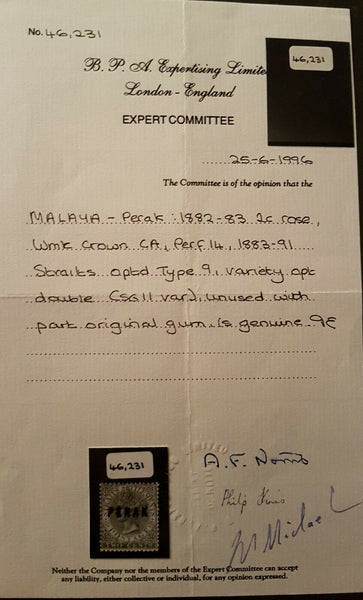 No. 46,231
46,231
B. P. A. Expertising Limite
London - England
EXPERT COMMITTEE
25-6-1996
The Committee is of the opinion that the
MALAYA - Perak: 1882-83 2c rose,
Wmk Crown CA, Perf 14, 1883-91
Straits optd Type 9, variety opt
double (SG11 var), unused with
part original gum, is genuine. 9E
46,231
PERAK
TWO CENTS
A.F. Norris
Philip
Michael
Neither the Company nor the members of the Expert Committee can accept
any liability, either collective or individual, for any opinion expressed.